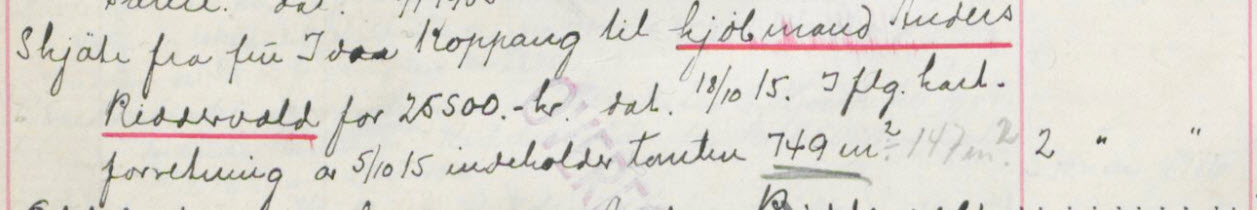 dat.
Skjøte fra frü Ida Koppang til kjöbmand Anders
Riddervold for 25500.- kr. dat. 18/10 15. I flg. kart-
forretning av 5/10 15 indeholder tomten 749 m². 147 m² 2 " "